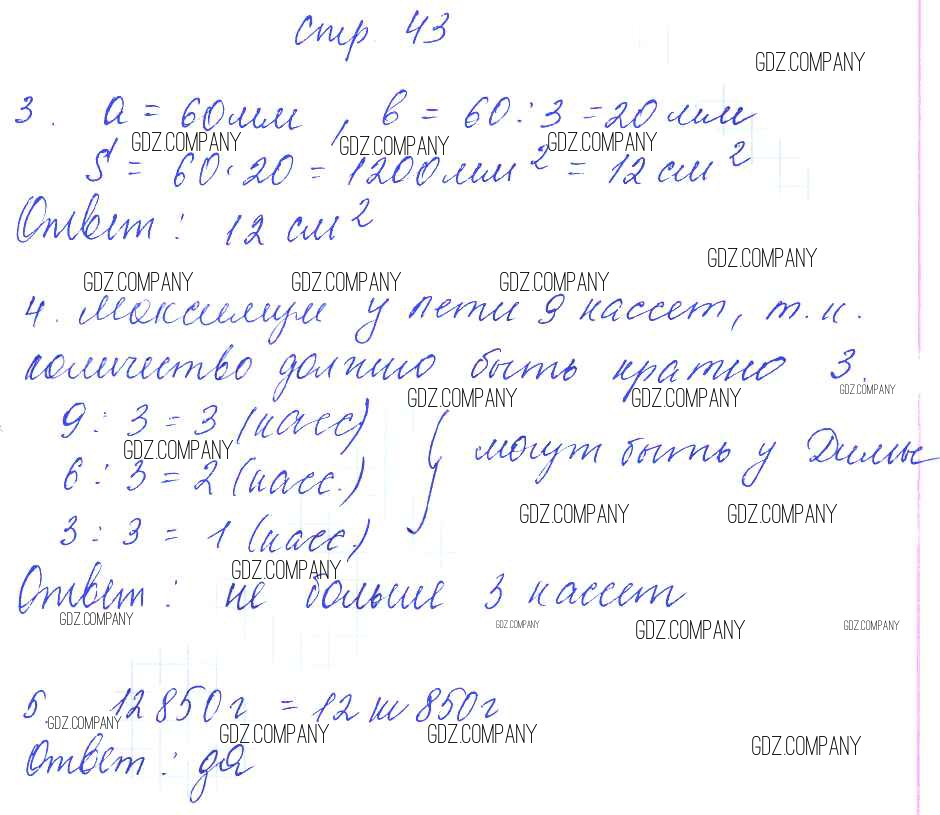 стр. 43
GDZ.COMPANY
3. a = 60 мм, в = 60 : 3 = 20 мм
GDZ.COMPANY GDZ.COMPANY GDZ.COMPANY
S = 60 · 20 = 1200 мм² = 12 см²
Ответ : 12 см²
GDZ.COMPANY
GDZ.COMPANY GDZ.COMPANY GDZ.COMPANY
4. Максимум у Пети 9 кассет, т. к.
количество должно быть кратно 3.
GDZ.COMPANY GDZ.COMPANY GDZ.COMPANY
9 : 3 = 3 (касс)
GDZ.COMPANY
6 : 3 = 2 (касс.) } могут быть у Димы
GDZ.COMPANY GDZ.COMPANY
3 : 3 = 1 (касс.)
GDZ.COMPANY
Ответ : не больше 3 кассет
GDZ.COMPANY GDZ.COMPANY GDZ.COMPANY GDZ.COMPANY
5. 12 850 г = 12 кг 850 г
GDZ.COMPANY GDZ.COMPANY GDZ.COMPANY GDZ.COMPANY
Ответ : да